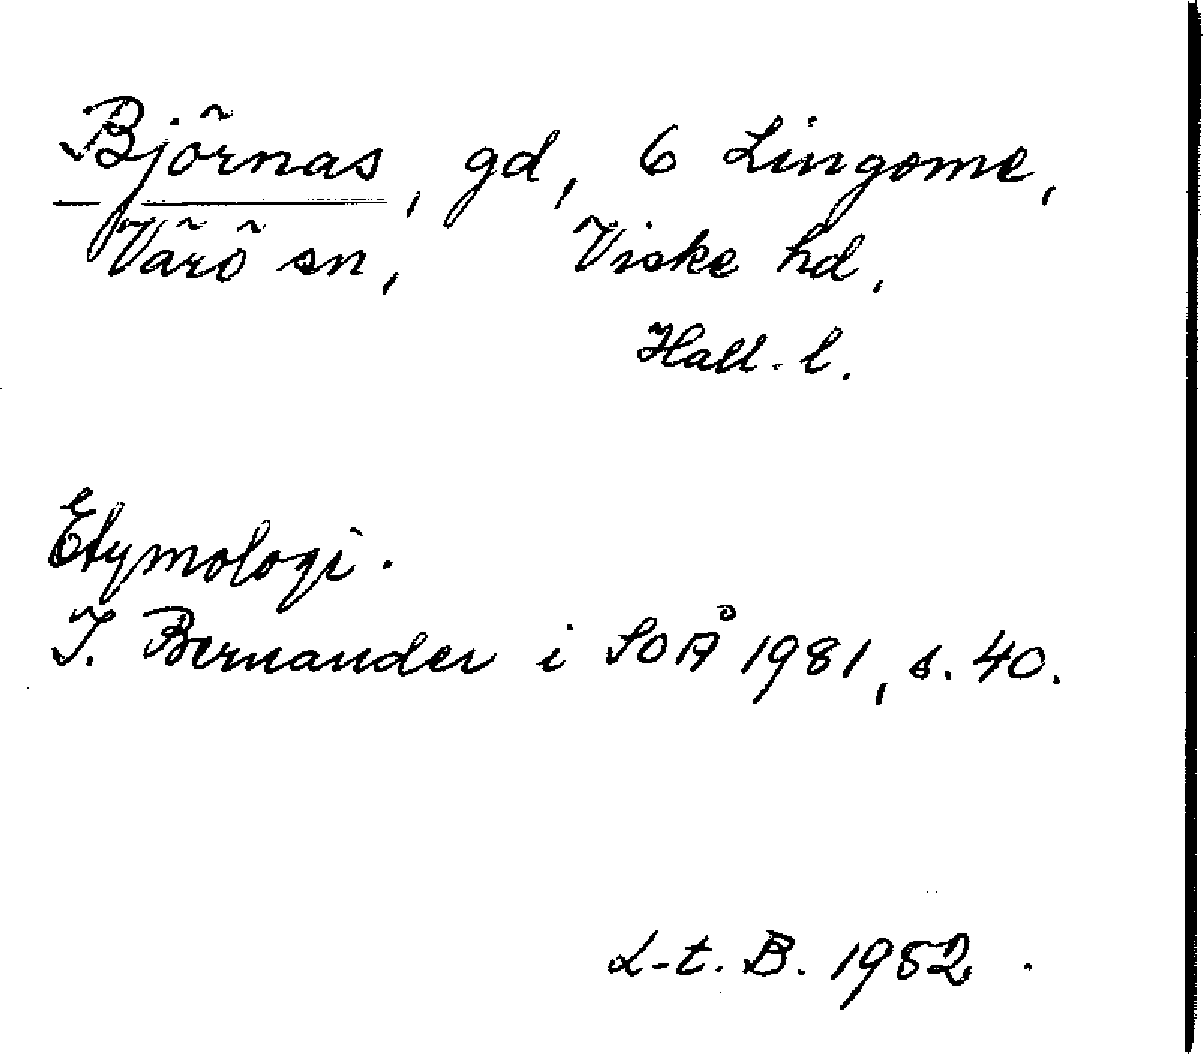 Björnas, gd, 6 Lingome,
Värö sn, Viske hd,
Hall. l.
Etymologi.
I. Bernander i SOÅ 1981, s. 40.
L-t. B. 1982.